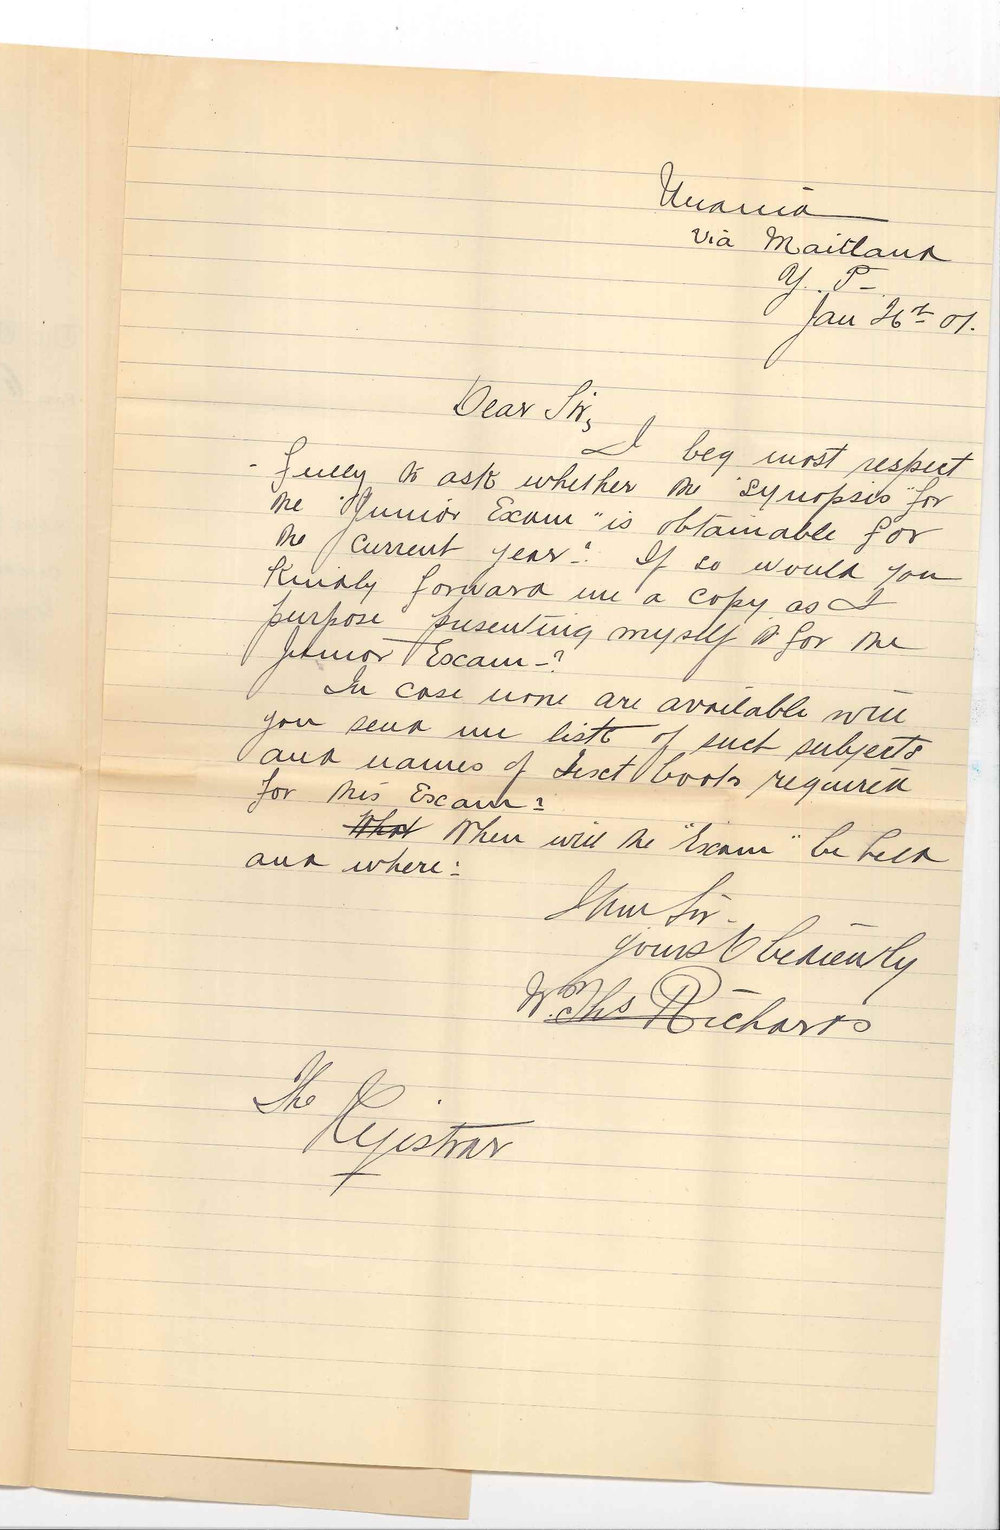 Urania
via Maitland
Y. P.
Jan 26th 01.
Dear Sir,
I beg most respect
-fully to ask whether the "Synopsis" for
the "Junior Exam" is obtainable for
the current year? If so would you
kindly forward me a copy as I
purpose presenting myself for the
Junior Exam-?
In case none are available will
you send me list of such subjects
and names of Text books required
for this Exam?
What When will the "Exam" be held
and where:
I am Sir-
yours Obediently
Wm. Ths Richards
The
Registrar